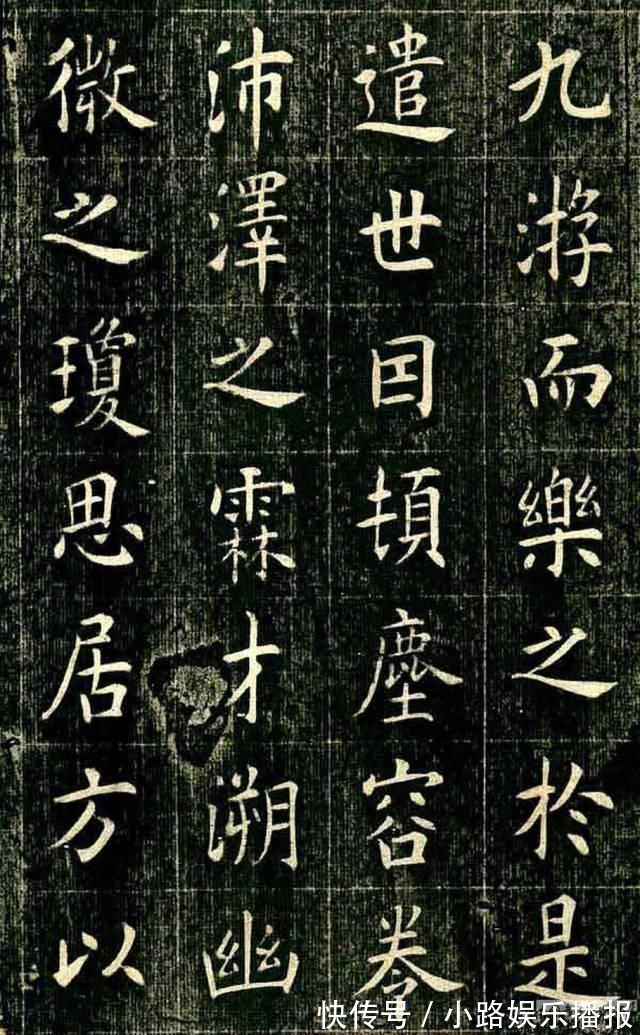 九游而樂之於是
遣世頓塵容卷
沛澤之霖才溯幽
微之瓊思居方以
快传号/小路娱乐播报